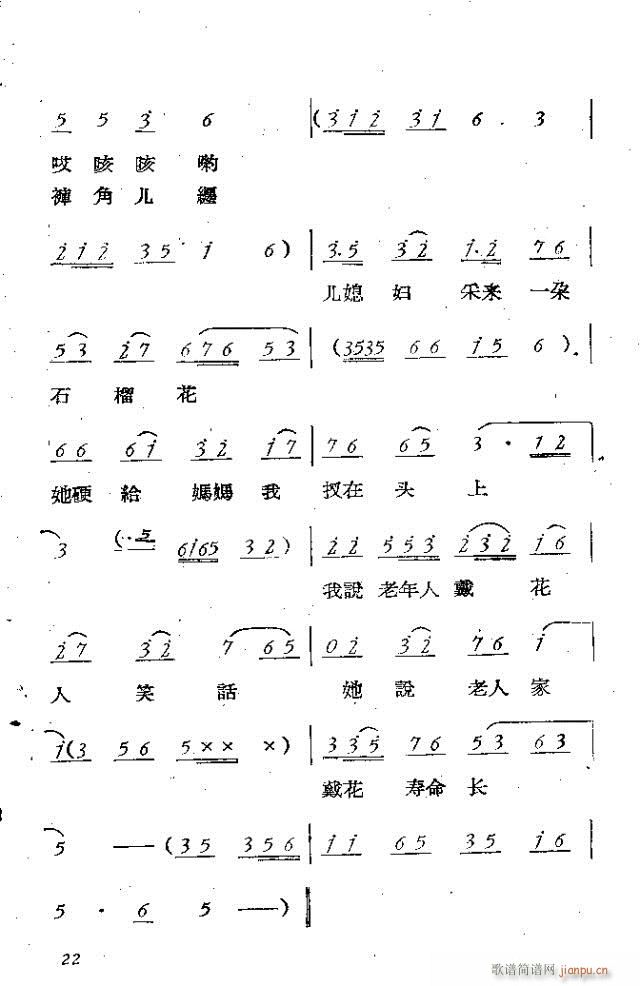 5 5 3 6 | (3 1 2 3 1 6 . 3 |
哎咳咳喲
褲角儿纏
2 1 2 3 5 1 6) | 3.5 3 2 1.2 7 6
儿媳妇采来一朶
5 3 2 7 6 7 6 5 3 | (3535 6 6 1 5 6)
石榴花
6 6 6 1 3 2 1 7 | 7 6 6 5 3 . 1 2
她硬給媽媽我 扠在头上
3 (.. 5 6165 3 2) | 2 2 5 5 3 2 3 2 1 6
我說老年人戴花
2 7 3 2 7 6 5 | 0 2 3 2 7 6 1
人笑話 她說老人家
1 (3 5 6 5 × × ×) | 3 3 5 7 6 5 3 6 3
戴花寿命长
5 —— (3 5 3 5 6 | 1 1 6 5 3 5 1 6 |
5 . 6 5 ——)
22
歌谱简谱网 jianpu.cn